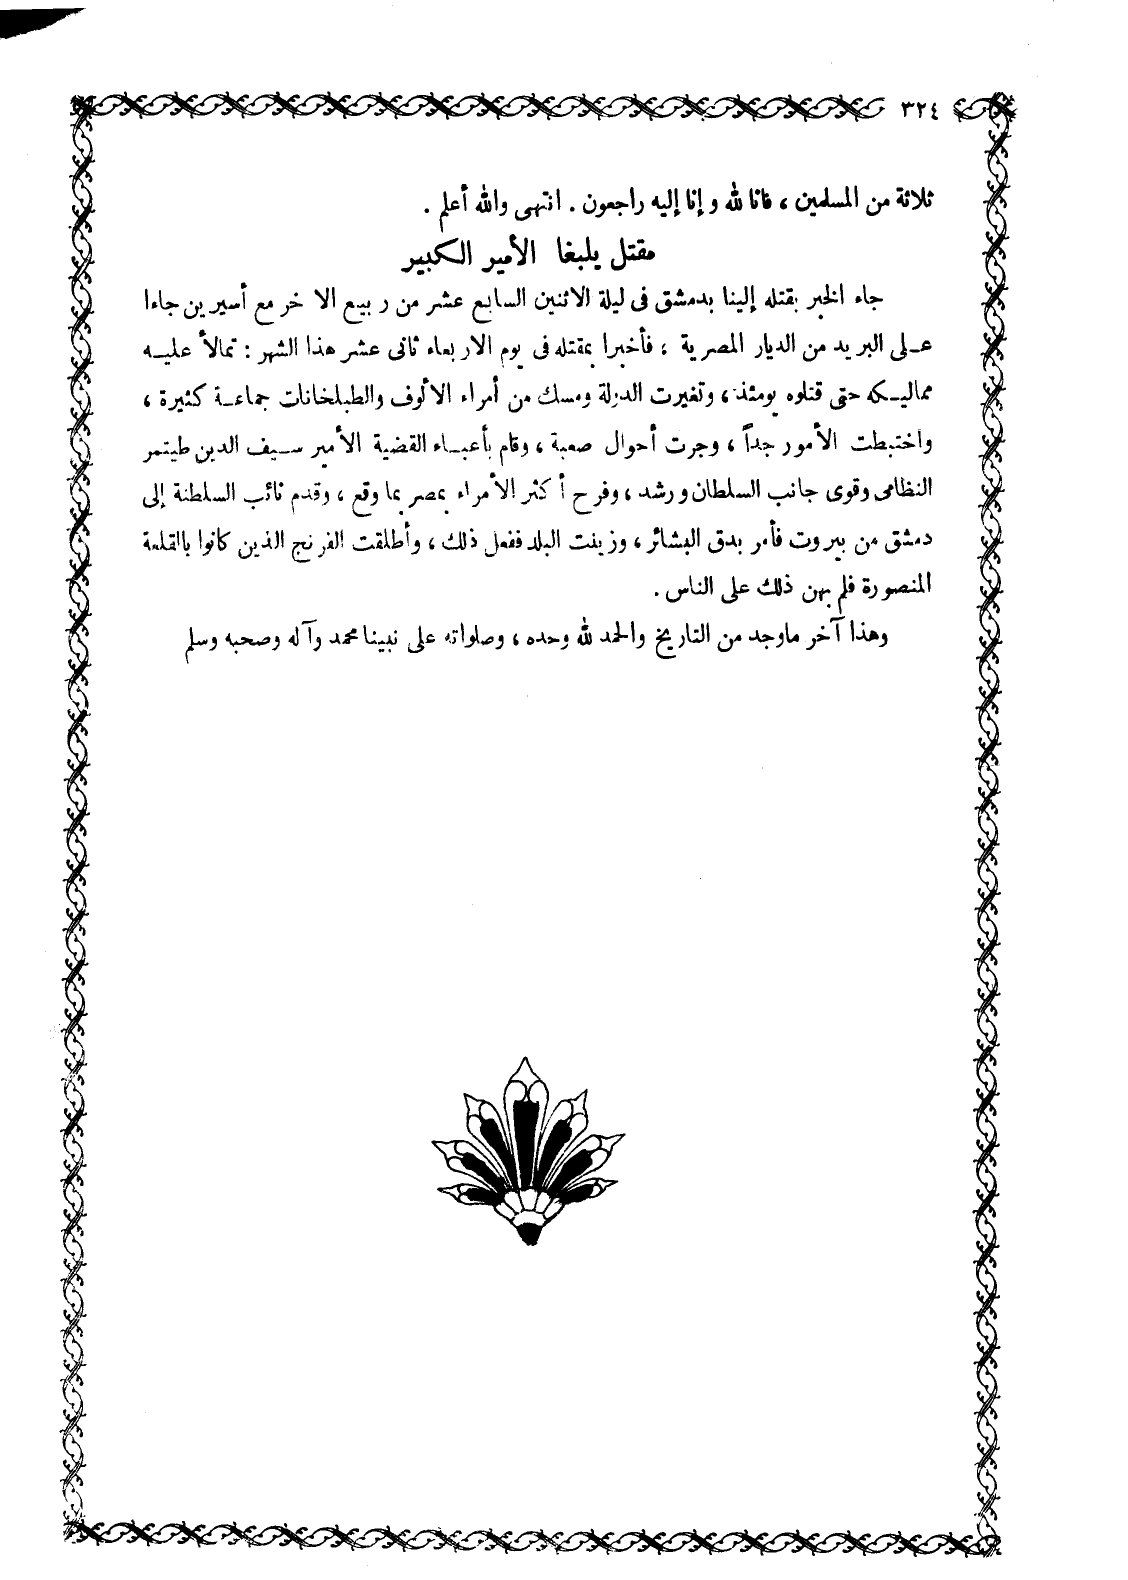 ٣٢٤
ثلاثة من المسلمين ، فانا لله و إنا إليه راجعون . انتهى والله أعلم .
مقتل يلبغا الأمير الكبير
جاء الخبر بقتله إلينا بدمشق فى ليلة الاثنين السابع عشر من ربيع الآخر مع أسيرين جاءا
على البريد من الديار المصرية ، فأخبرا بمقتله فى يوم الاربعاء ثانى عشر هذا الشهر : تمالأ عليه
مماليكه حتى قتلوه يومئذ ، وتغيرت الدولة ومسك من أمراء الألوف والطبلخانات جماعة كثيرة ،
واختبطت الأمور جداً ، وجرت أحوال صعبة ، وقام بأعباء القضية الأمير سيف الدين طيتمر
النظامى وقوى جانب السلطان ورشد ، وفرح أكثر الأمراء بمصر بما وقع ، وقدم نائب السلطنة إلى
دمشق من بيروت فأمر بدق البشائر ، وزينت البلد ففعل ذلك ، وأطلقت الفرنج الذين كانوا بالقلعة
المنصورة فلم يهن ذلك على الناس .
وهذا آخر ماوجد من التاريخ والحمد لله وحده ، وصلواته على نبينا محمد وآله وصحبه وسلم